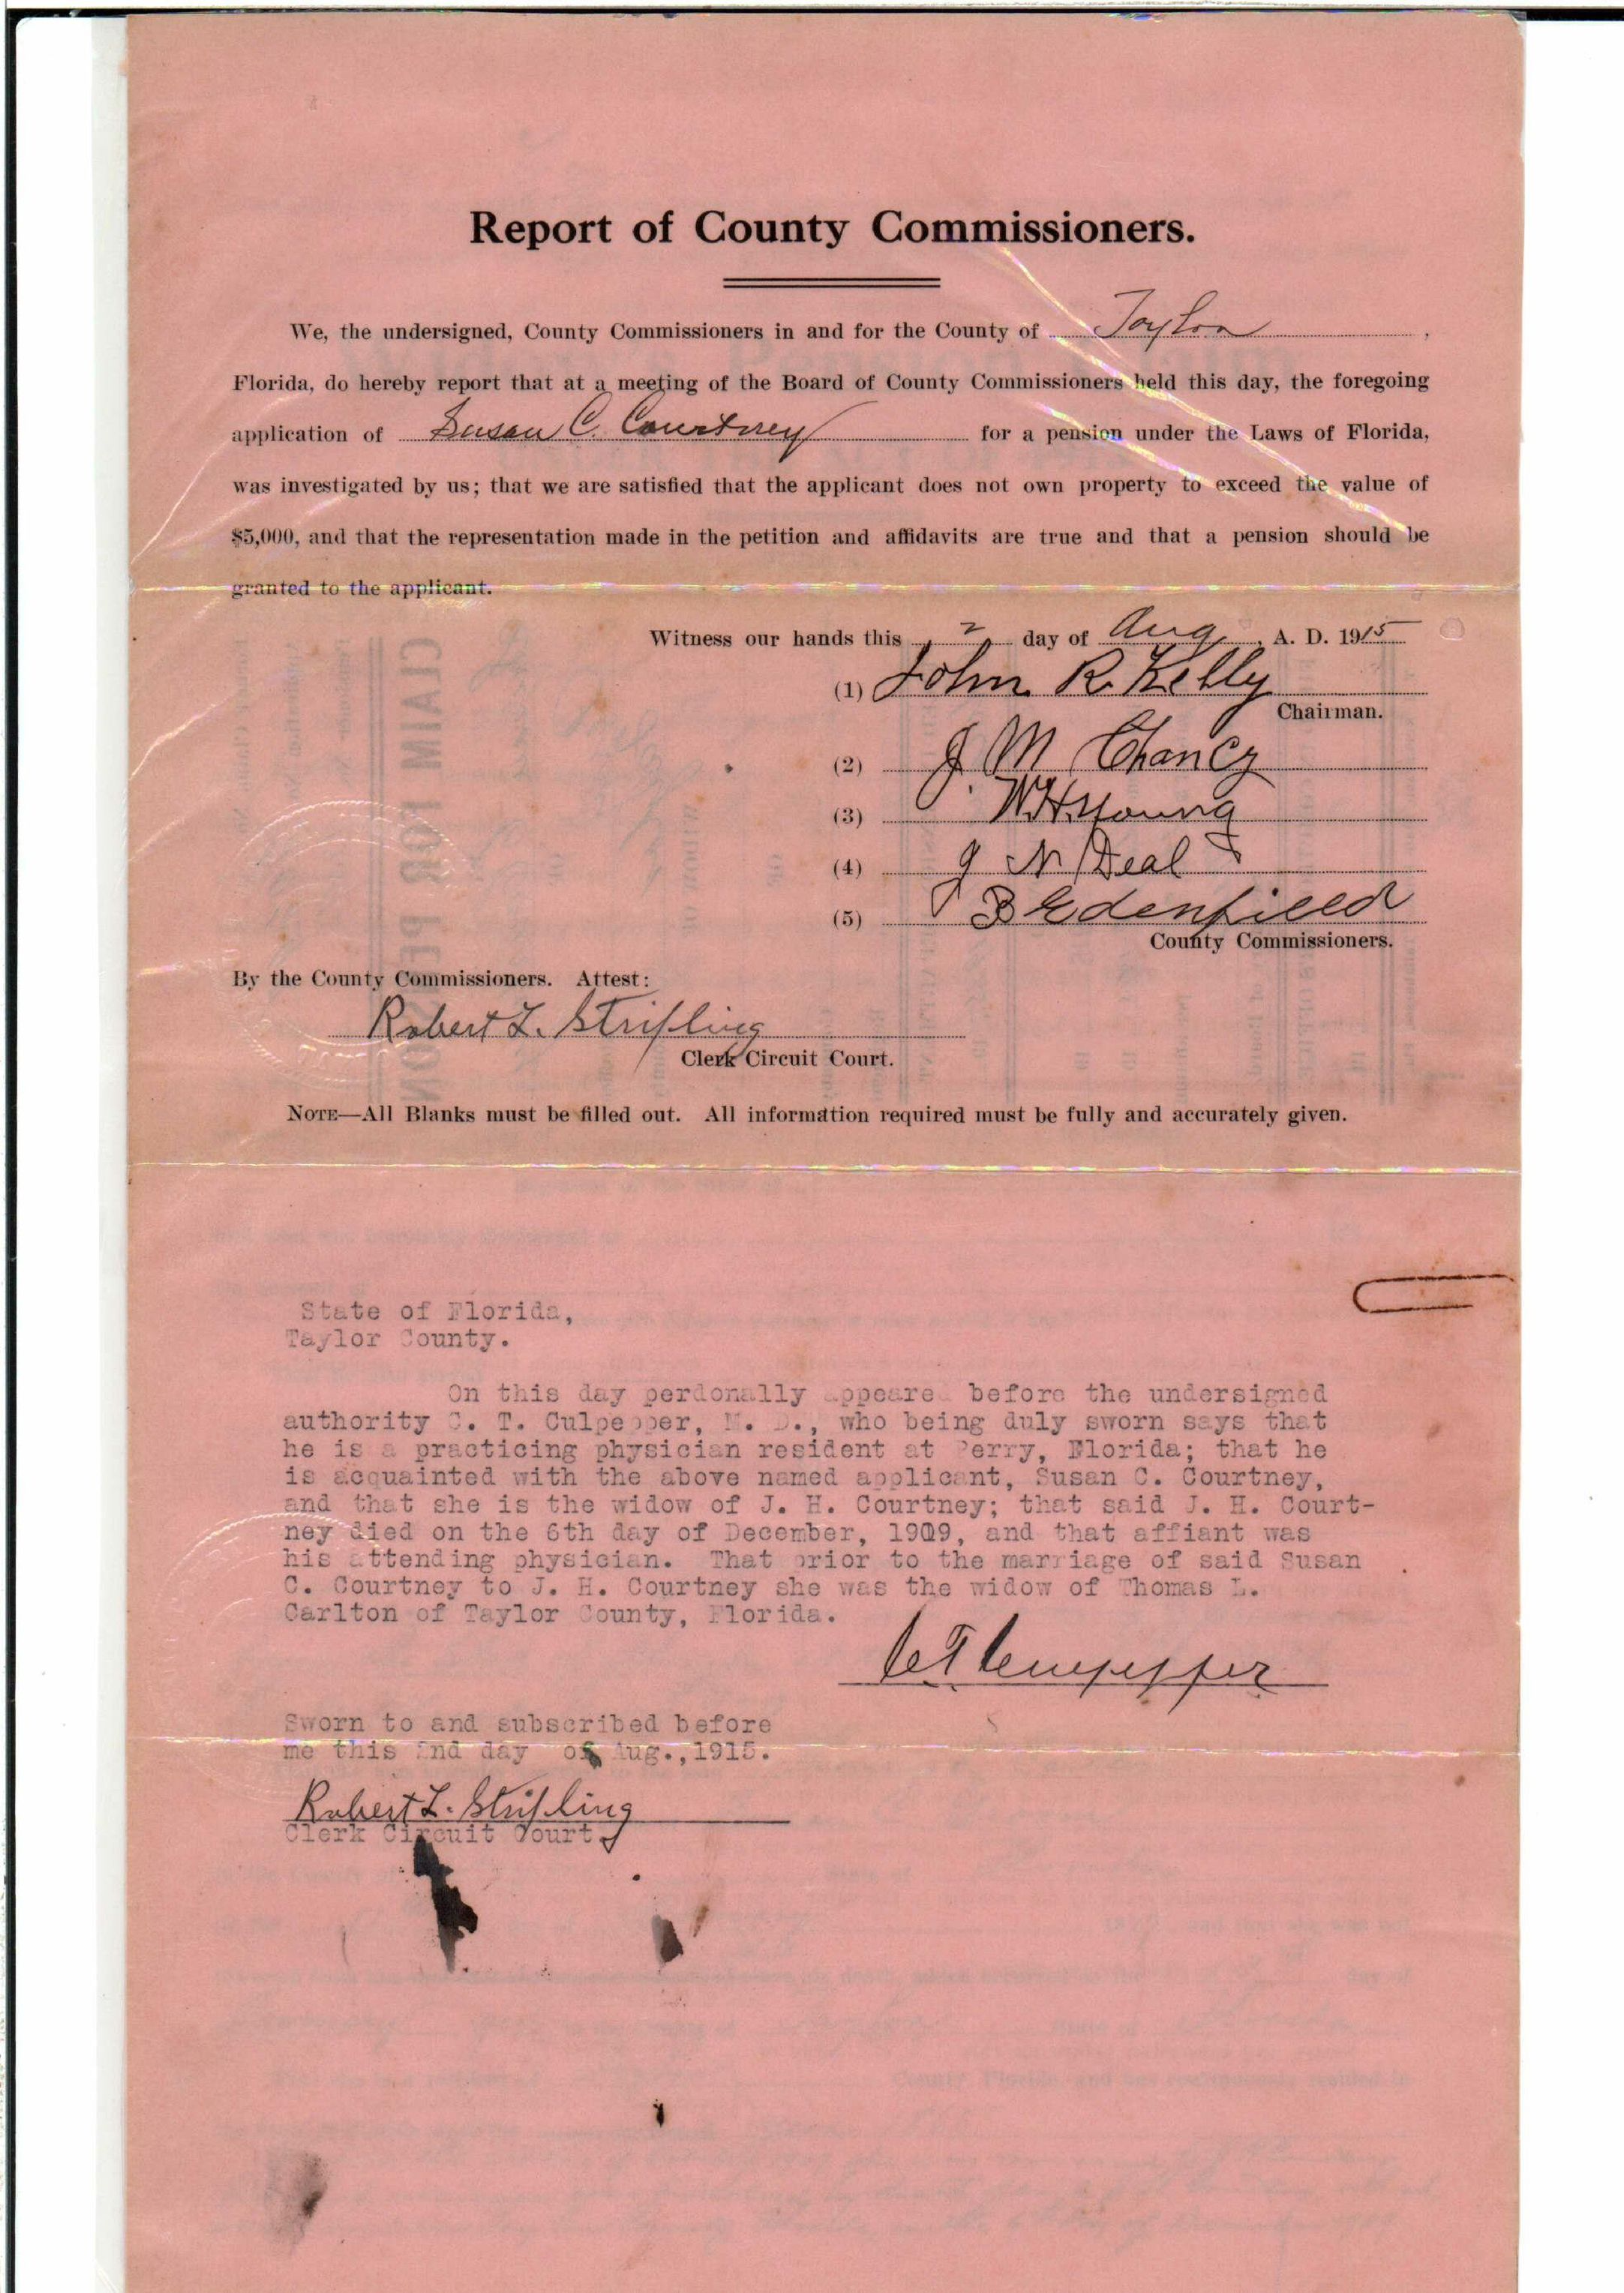 Report of County Commissioners.
We, the undersigned, County Commissioners in and for the County of Taylor
Florida, do hereby report that at a meeting of the Board of County Commissioners held this day, the foregoing
application of Susan C. Courtney for a pension under the Laws of Florida,
was investigated by us; that we are satisfied that the applicant does not own property to exceed the value of
$5,000, and that the representation made in the petition and affidavits are true and that a pension should be
granted to the applicant.
Witness our hands this 2 day of Aug, A. D. 1915
(1) John R. Kelly
Chairman.
(2) J M Chancy
(3) W.H. Young
(4) J N Deal
(5) J B Edenfield
County Commissioners.
By the County Commissioners. Attest:
Robert L. Stripling
Clerk Circuit Court.
NOTE—All Blanks must be filled out. All information required must be fully and accurately given.
State of Florida,
Taylor County.
On this day perdonally appeared before the undersigned
authority C. T. Culpepper, M. D., who being duly sworn says that
he is a practicing physician resident at Perry, Florida; that he
is acquainted with the above named applicant, Susan C. Courtney,
and that she is the widow of J. H. Courtney; that said J. H. Court-
ney died on the 6th day of December, 1909, and that affiant was
his attending physician. That prior to the marriage of said Susan
C. Courtney to J. H. Courtney she was the widow of Thomas L.
Carlton of Taylor County, Florida.
C T Culpepper
Sworn to and subscribed before
me this 2nd day of Aug.,1915.
Robert L. Stripling
Clerk Circuit Court
CLAIM FOR PENSION